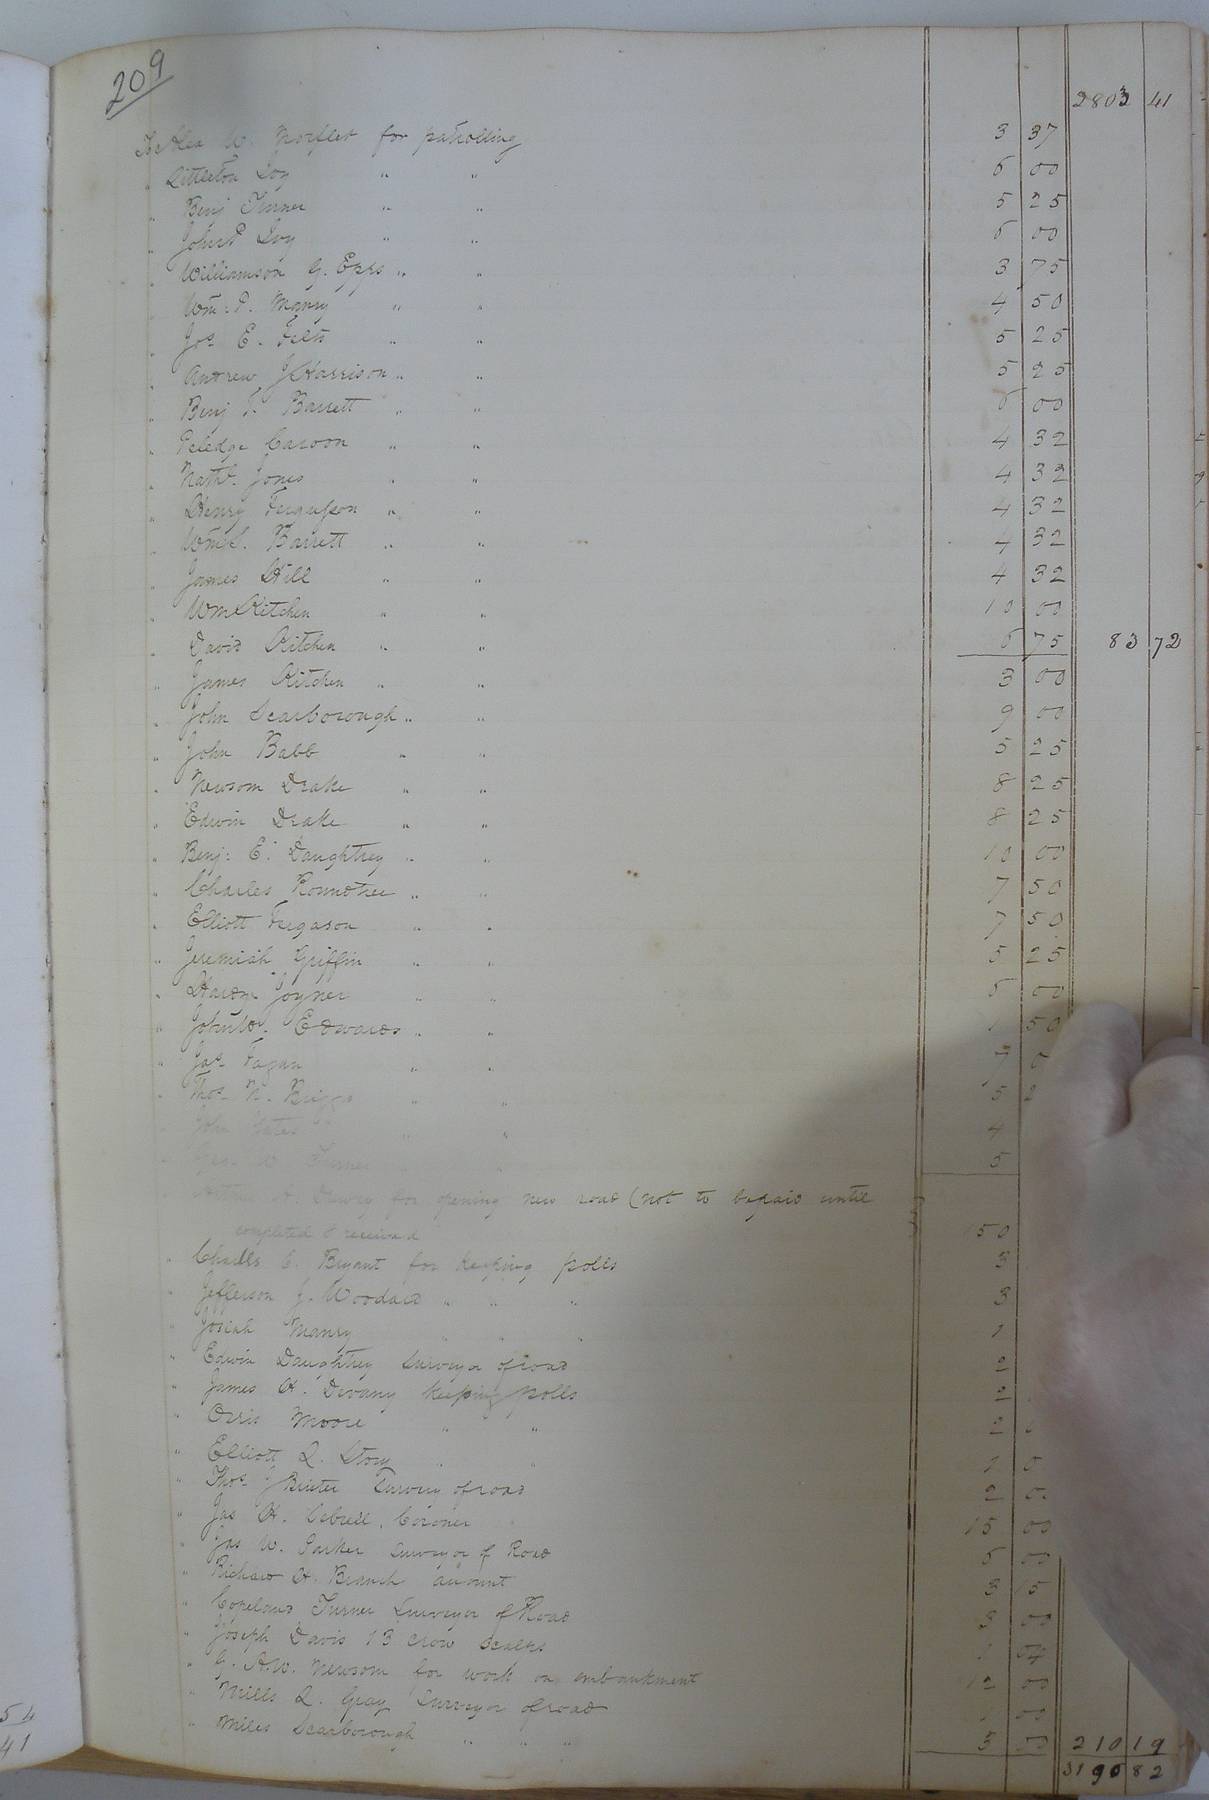 209
2803 41
To Alex W. Norflet for patrolling 3 37
" Littleton Ivy " " 6 00
" Benj Turner " " 5 25
" John P Ivy " " 6 00
" Williamson G. Epps " " 3 75
" Wm. P. Manry " " 4 50
" Jos. E. Felts " " 5 25
" Andrew J Harrison " " 5 25
" Benj T. Barrett " " 6 00
" Peledge Carson " " 4 32
" Nathl. Jones " " 4 32
" Henry Ferguson " " 4 32
" Wm Barrett " " 4 32
" James Hill " " 4 32
" Wm Kitchen " " 10 00
" David Kitchen " " 6 75 83 72
" James Kitchen " " 3 00
" John Scarborough " " 9 00
" John Babb " " 5 25
" Newsom Drake " " 8 25
" Edwin Drake " " 8 25
" Benj: E. Daughtrey " " 10 00
" Charles Roundtree " " 7 50
" Elliott Fergason " " 7 50
" Jeremiah Griffin " " 5 25
" Joyner " " 6 00
" John W. Edwards " " 50
" Jas. Fagan " " 7
" Thos. N. Briggs " " 5
" John " " 4
" W Turner 5
A. Drewry for opening new road (not to be paid until
completed & received 150
" Charles C. Bryant for keeping polls 3
" Jefferson J. Woodard " " " 3
" Josiah Manry " " " 1
" Edwin Daughtrey Surveyor of road 2
" James H. Devany keeping polls 2
" Orris Moore " " 2
" Elliott Q. Story " " 1
" Thos. J Binter Survey of road 2
" Jas H. Sebrell, Coroner 15 00
" Jas W. Parker Surveyor of Road 6 00
" Richard H. Branch account 3 5
" Copeland Turner Surveyor of Road 3 00
" Joseph Davis 13 crow scalps 1
" G. A.W. Newsom for work on embankment 12 00
" Mills Q. Gray Surveyor of road 1 00
" Miles Scarborough " " " 3 00 210 19
3196 82
54
41